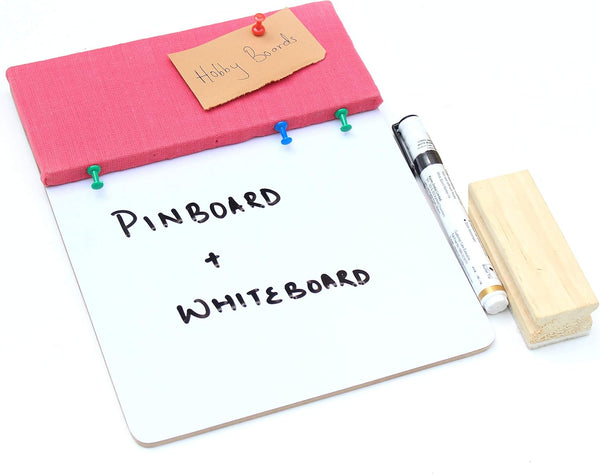 Hobby Boards
PINBOARD
+
WHITEBOARD